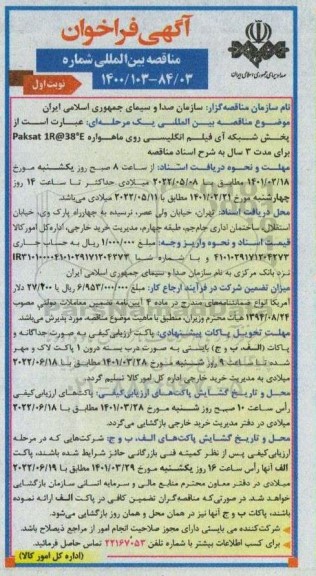 آگهی فراخوان
مناقصه بین المللی شماره
۱۴۰۰/۱۰۳-۸۴/۰۳
نوبت اول
صدا و سیمای جمهوری اسلامی ایران
نام سازمان مناقصه‌گزار: سازمان صدا و سیمای جمهوری اسلامی ایران
موضوع مناقصه بین‌المللی یک مرحله‌ای: عبارت است از
پخش شبکه آی فیلم انگلیسی روی ماهواره Paksat 1R@38°E
برای مدت ۳ سال به شرح اسناد مناقصه
مهلت و نحوه دریافت اسناد: از ساعت ۸ صبح روز یکشنبه مورخ
میلادی حداکثر تا ساعت ۱۴ روز
چهارشنبه مورخ ۱۴۰۱/۰۲/۲۱ مطابق با ۲۰۲۲/۰۵/۱۱ میلادی می‌باشد.
محل دریافت اسناد: تهران، خیابان ولی عصر، نرسیده به چهارراه پارک وی، خیابان
استقلال، ساختمان اداری جام‌جم، طبقه چهارم، مدیریت خرید خارجی، اداره کل امور کالا
قیمت اسناد و نحوه واریز وجه: مبلغ ۱/۰۰۰/۰۰۰ ریال به حساب جاری
۴۱۰۱۰۲۹۱۷۱۲۰۴۲۷۳ و با شماره شبا
نزد بانک مرکزی به نام سازمان صدا و سیمای جمهوری اسلامی ایران
میزان تضمین شرکت در فرآیند ارجاع کار: مبلغ ۶/۹۵۳/۰۰۰/۰۰۰ ریال یا ۲۷/۴۰۰ دلار
آمریکا انواع ضمانتنامه‌های مندرج در ماده ۴ آیین‌نامه تضمین معاملات دولتی مصوب
۱۳۹۴/۰۸/۲۴ هیأت محترم وزیران، منطبق با ماهیت موضوع مناقصه، مورد پذیرش می‌باشد.
مهلت تحویل پاکات پیشنهادی: پاکت ارزیابی کیفی به صورت جداگانه و
پاکات (الف، ب و ج) بایستی به صورت سربسته درون ۱ پاکت لاک و مهر
شده تا ساعت ۹ روز شنبه مورخ ۱۴۰۱/۰۳/۲۸ مطابق با ۲۰۲۲/۰۶/۱۸
میلادی به مدیریت خرید خارجی اداره کل امور کالا تسلیم گردد.
محل و تاریخ گشایش پاکت‌های ارزیابی کیفی: پاکت‌های ارزیابی کیفی
رأس ساعت ۱۰ صبح روز شنبه مورخ ۱۴۰۱/۰۳/۲۸ مطابق با ۲۰۲۲/۰۶/۱۸
میلادی در دفتر مدیریت خرید خارجی بازگشایی می‌گردد.
محل و تاریخ گشایش پاکت‌های الف، ب و ج: شرکت‌هایی که در مرحله
ارزیابی کیفی پس از نظر کمیته فنی بازرگانی حائز شرایط شده باشند، پاکت
الف آنها رأس ساعت ۱۶ روز یکشنبه مورخ ۱۴۰۱/۰۳/۲۹ مطابق با ۲۰۲۲/۰۶/۱۹
میلادی در دفتر معاون محترم منابع مالی و سرمایه انسانی سازمان بازگشایی
خواهد شد. در صورتی که مناقصه‌گران تضمین کافی در پاکت الف ارائه نموده
باشند، پاکات ب و ج آنها نیز در همان محل و همان روز بازگشایی می‌شود.
شرکت کننده می بایستی دارای مجوز صلاحیت انجام امور از مراجع ذیصلاح باشد.
برای کسب اطلاعات بیشتر با شماره تلفن ۲۲۱۶۷۰۵۳ تماس حاصل فرمائید.
(اداره کل امور کالا)